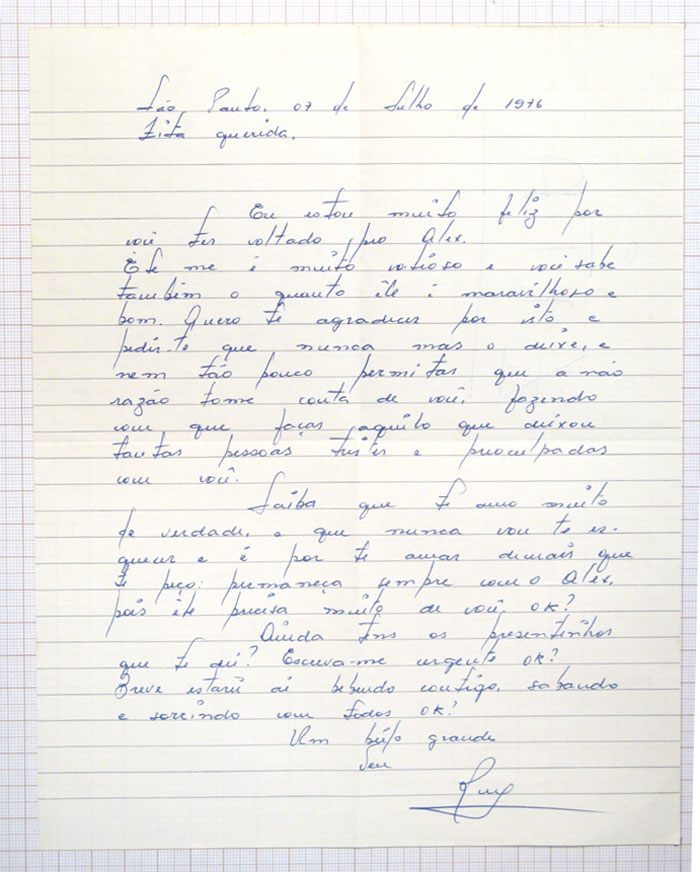 São Paulo, 07 de Julho de 1976
Zita querida.
Eu estou muito feliz por
você ter voltado pro Alex.
Êle me é muito valioso e você sabe
também o quanto êle é maravilhoso e
bom. Quero te agradecer por isto e
pedir-te que nunca mas o deixe, e
nem tão pouco permitas que a não
razão tome conta de você, fazendo
com que faças aquilo que deixou
tantas pessoas tristes e preoculpadas
com você.
Saiba que te amo muito
de verdade, e que nunca vou te es-
quecer e é por te amar demais que
te peço: permaneça sempre com o Alex,
pois êle precisa muito de você, OK?
Ainda tens os presentinhos
que te dei? Escreva-me urgente OK?
Breve estarei ai bebendo contigo, sabando
e sorrindo com todos OK?
Um beijo grande
Seu